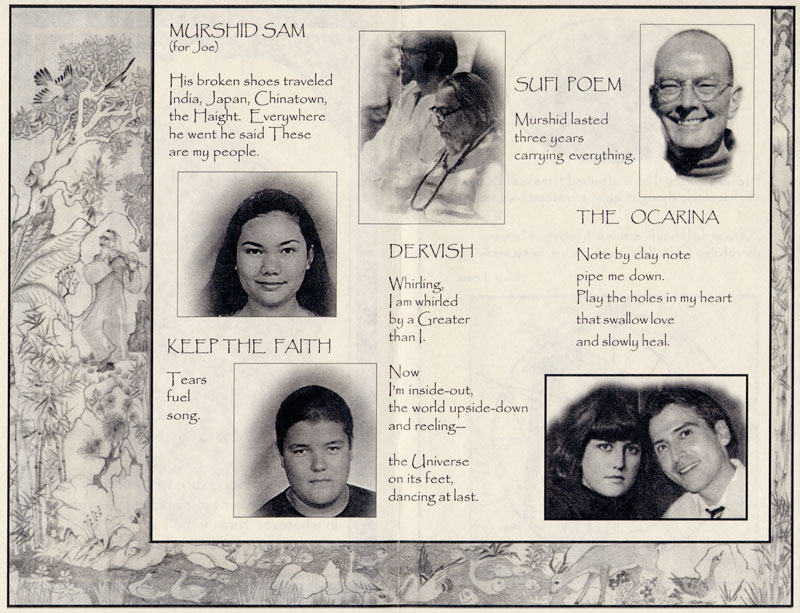 MURSHID SAM
(for Joe)
His broken shoes traveled
India, Japan, Chinatown,
the Haight. Everywhere
he went he said These
are my people.
KEEP THE FAITH
Tears
fuel
song.
DERVISH
Whirling,
I am whirled
by a Greater
than I.
Now
I'm inside-out,
the world upside-down
and reeling—
the Universe
on its feet,
dancing at last.
SUFI POEM
Murshid lasted
three years
carrying everything.
THE OCARINA
Note by clay note
pipe me down.
Play the holes in my heart
that swallow love
and slowly heal.